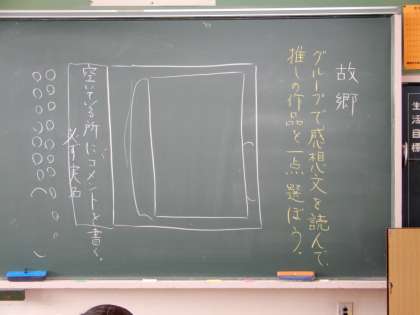 故郷
グループで感想文を読んで、
推しの作品を一点選ぼう。
空いている所にコメントを書く。
必ず実名
生活目標